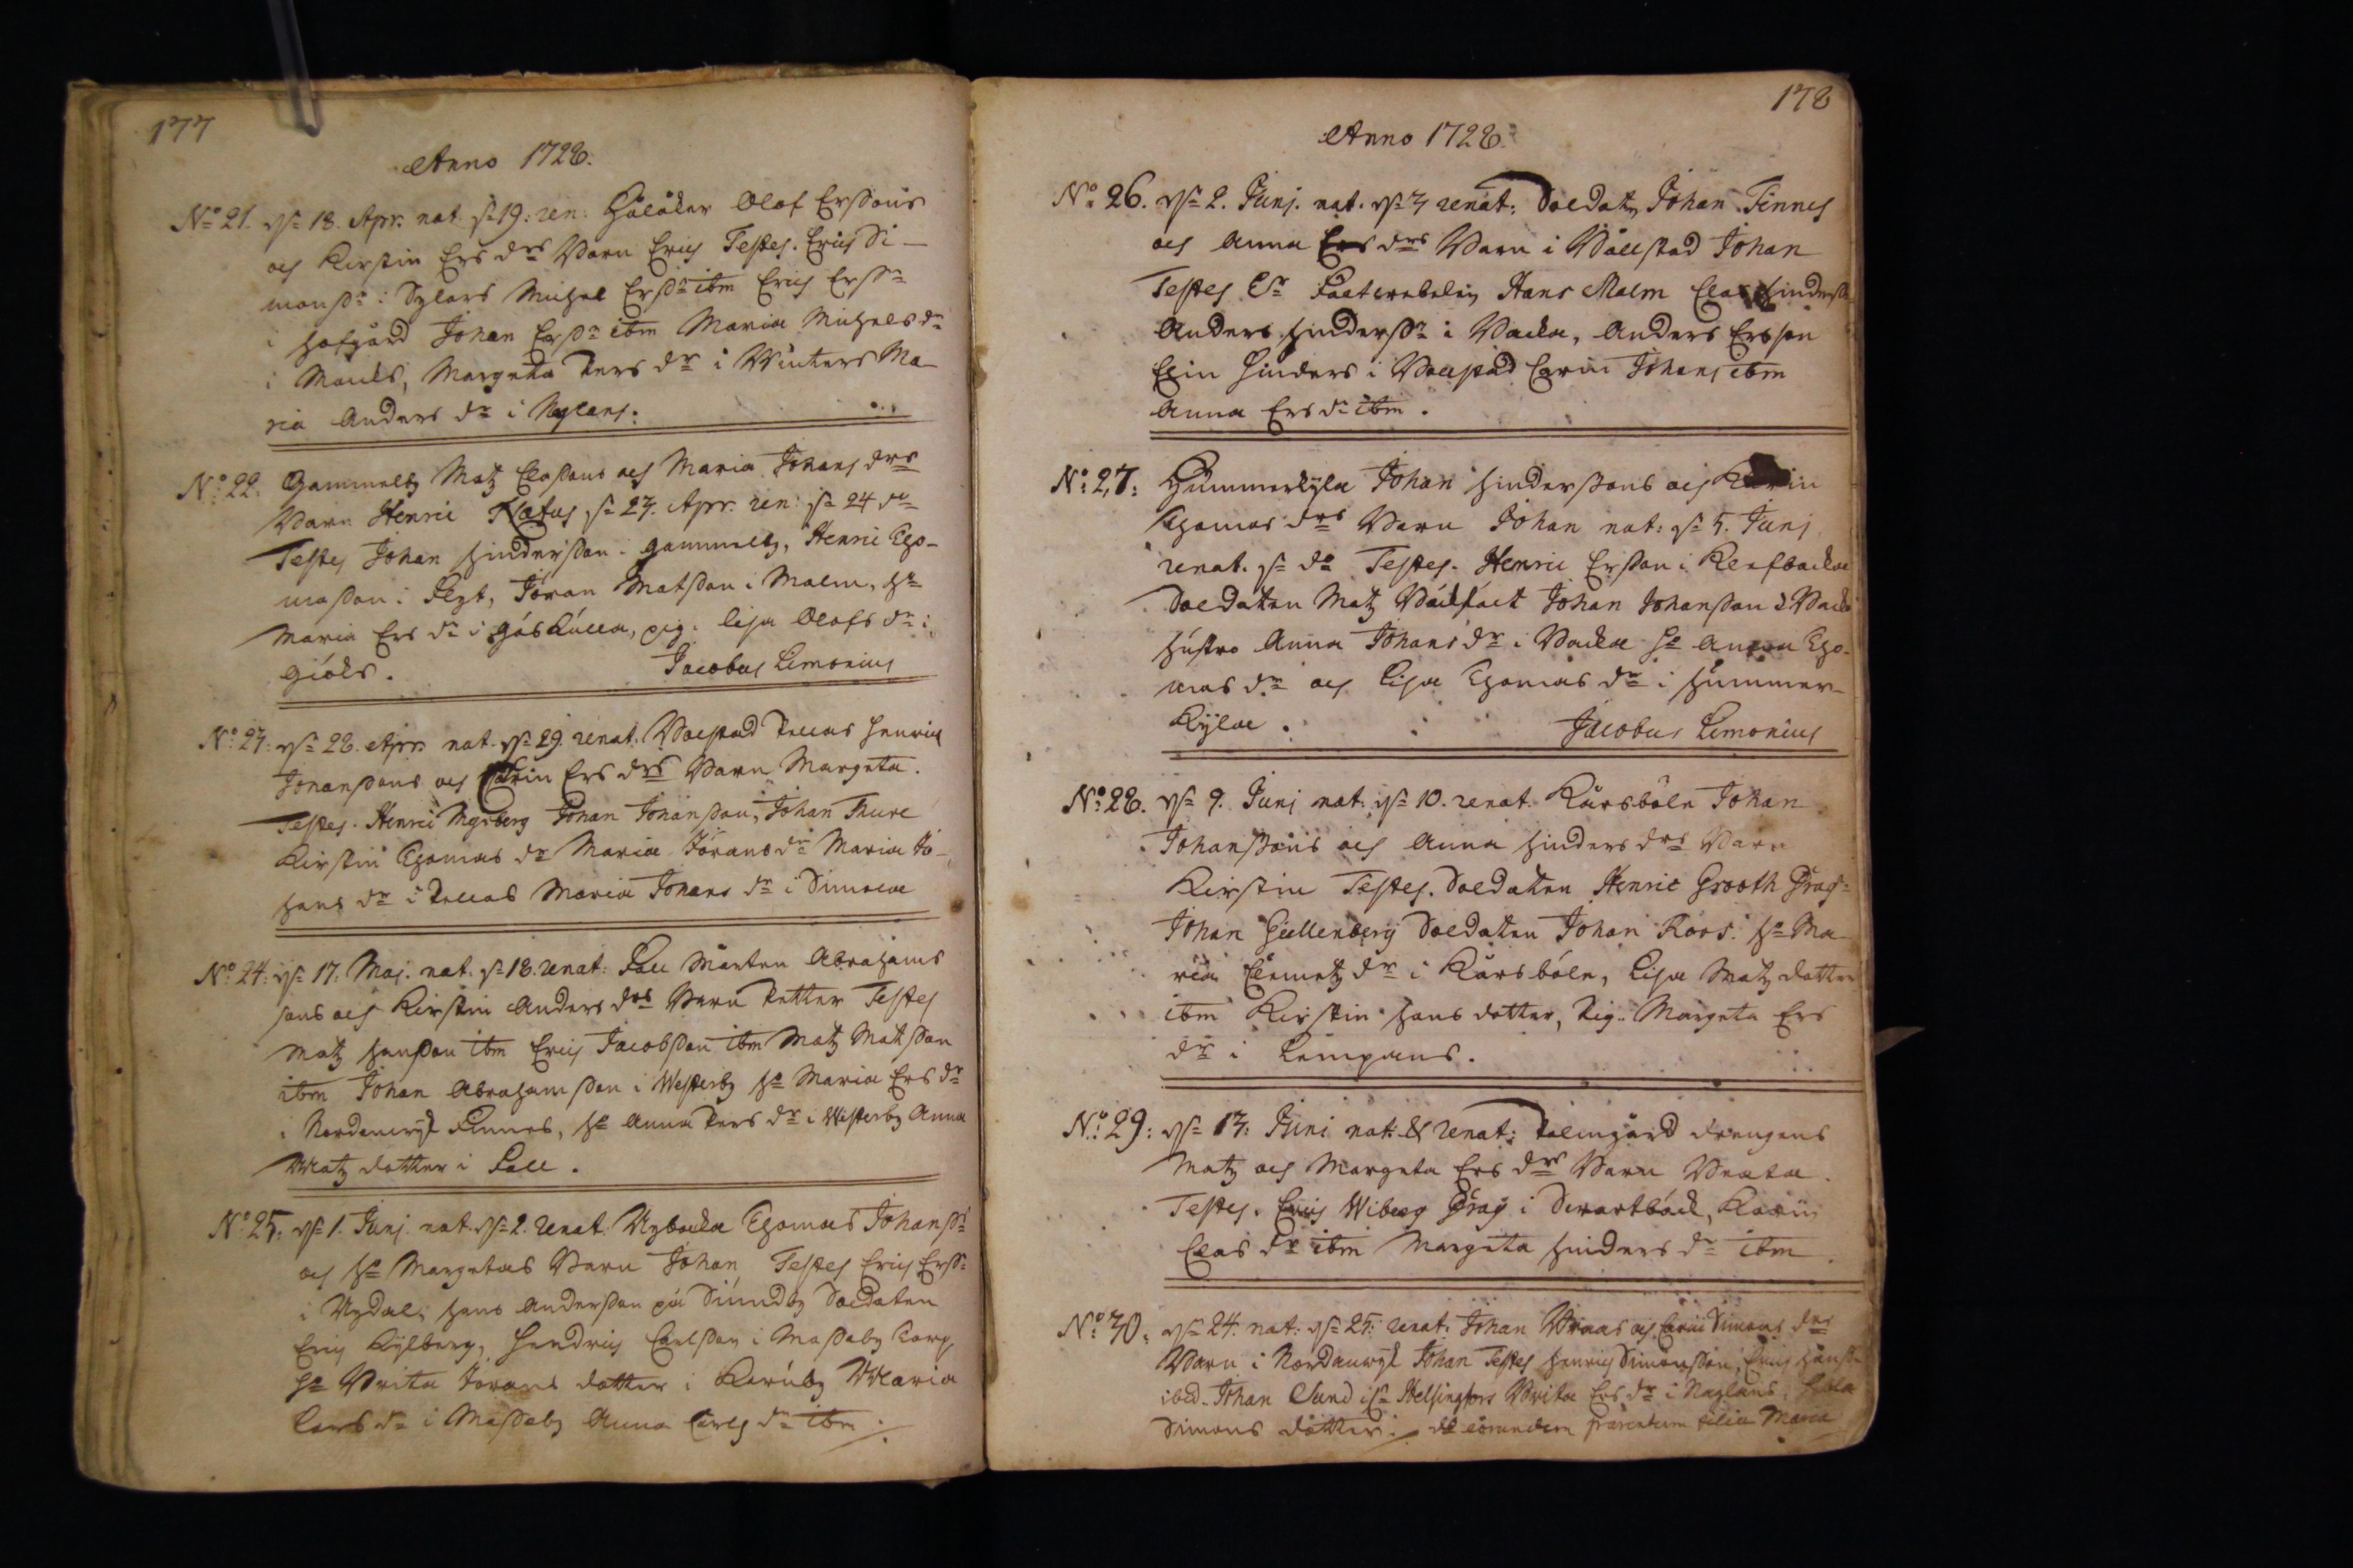 177
Anno 1728.
No 21. ds 18. Apr. nat ds 19: ren: Håkåker Olof Erssons
och Kirstin Ers drs Barn Erich Testes. Erich Si-
monssn i Sylars Michel Erssn ibm Erich Erssn
i Hofgård Johan Erssn ibm Maria Michels dr
i Maris, Margeta Pers dr i Winters Ma-
ria Anders dr i Nylans.
No 22. Gammelby Matz Clasons och Maria Johans drs
Barn Henric Natus ds 23. Apr. ren: ds 24 do
Testes Johan Hindersson i Gammelby, Henric Tho-
masson i Pligt, Jöran Matsson i Malm, Ho
Maria Ers dr i Gåskulla, pig: Lisa Olofs dr i
Giöks. Jacobus Limonius
No 23: ds 28. Apr. nat. ds 29. renat. Bolstad Pellas Henrich
Johanssons och Carin Ers drs Barn Margeta.
Testes. Henric Nyberg Johan Johansson, Johan Thure
Kirstin Thomas dr Maria Jörans dr Maria Jo-
hans dr i Pellas Maria Johans dr i Simola
No 24: ds 17. Maj. nat. ds 18. renat: Fall Mårten Abrahams
sons och Kirstin Anders drs Barn Petter Testes
Matz Hansson ibm Erich Jacobsson ibm Matz Matsson
ibm Johan Abrahamsson i Westerby Ho Maria Ers dr
i Nordanwijk Finnes, Ho Anna Pers dr i Westerby Anna
Matz dotter i Fall.
No 25. ds 1. Junj. nat. ds 2. renat. Nybacka Thomas Johanssn
och Ho Margetas Barn Johan Testes Erich Erssn
i Nydal, Hans Andersson på Sundby Soldaten
Erich Kylberg, Hendrich Carlsson i Massaby Torp
Ho Brita Jörans dotter i Kernby Maria
Lars dr i Massaby Anna Carls dr ibm
178
Anno 1728.
No 26. ds 2. Junj. nat. ds 3 renat: Soldatz Johan Finnes
och Anna Ers drs Barn i Bålstad Johan
Testes Hr Hans Malm Clas Hinderssn
Anders Hinderssn i Backa, Anders Ersson
Elin Hinders i Bolstad Carin Johans ibm
Anna Ers dr ibm.
No 27: Hummerkyla Johan Hinderssons och Karin
Thomas drs Barn Johan nat: ds 5. Junj
renat. ds do Testes. Henric Ersson i Refbacka
Soldaten Matz Johan Johansson i Backa
Hustro Anna Johans dr i Backa Ho Anna Tho-
mas dr och Lisa Thomas dr i Hummer-
kyla. Jacobus Limonius
No 28. ds 9. Junj nat: ds 10. renat. Kårsböle Johan
Johanssons och Anna Hinders drs Barn
Kirstin Testes. Soldaten Henric Grooth Drag:
Johan Gyllenberg Soldaten Johan Roos. Ho Ma-
ria Clemetz dr i Kårsböle, Lisa Matz dotter
ibm Kirstin Hans dotter, Pig. Margeta Ers
dr i Lempans.
No 29: ds 13. Juni nat: & renat: Palmgård drengens
Matz och Margeta Ers drs Barn Beata.
Testes. Erich Wiberg Drag i Swartbäck, Karin
Clas dr ibm Margeta Hinders dr ibm.
No 30. ds 24. nat: ds 25: renat. Johan och Carin Simons drs
Barn i Nordanwijk Johan Testes Henrich Simonsson, Erich Hanssn
ibid. Johan Sund Helsingfors Brita Ers dr i Nyglans,
Simons dotter. eorundem parentum filia Maria